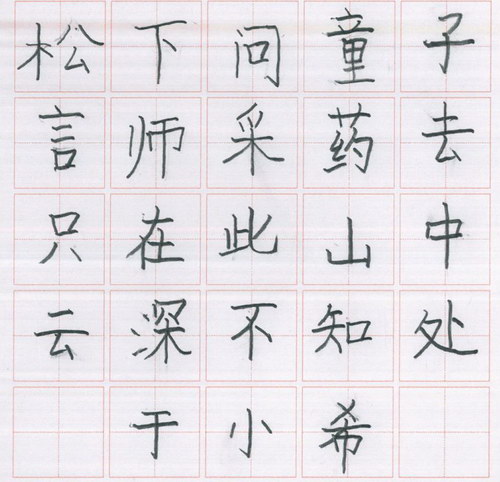 松下问童子
言师采药去
只在此山中
云深不知处
于小希